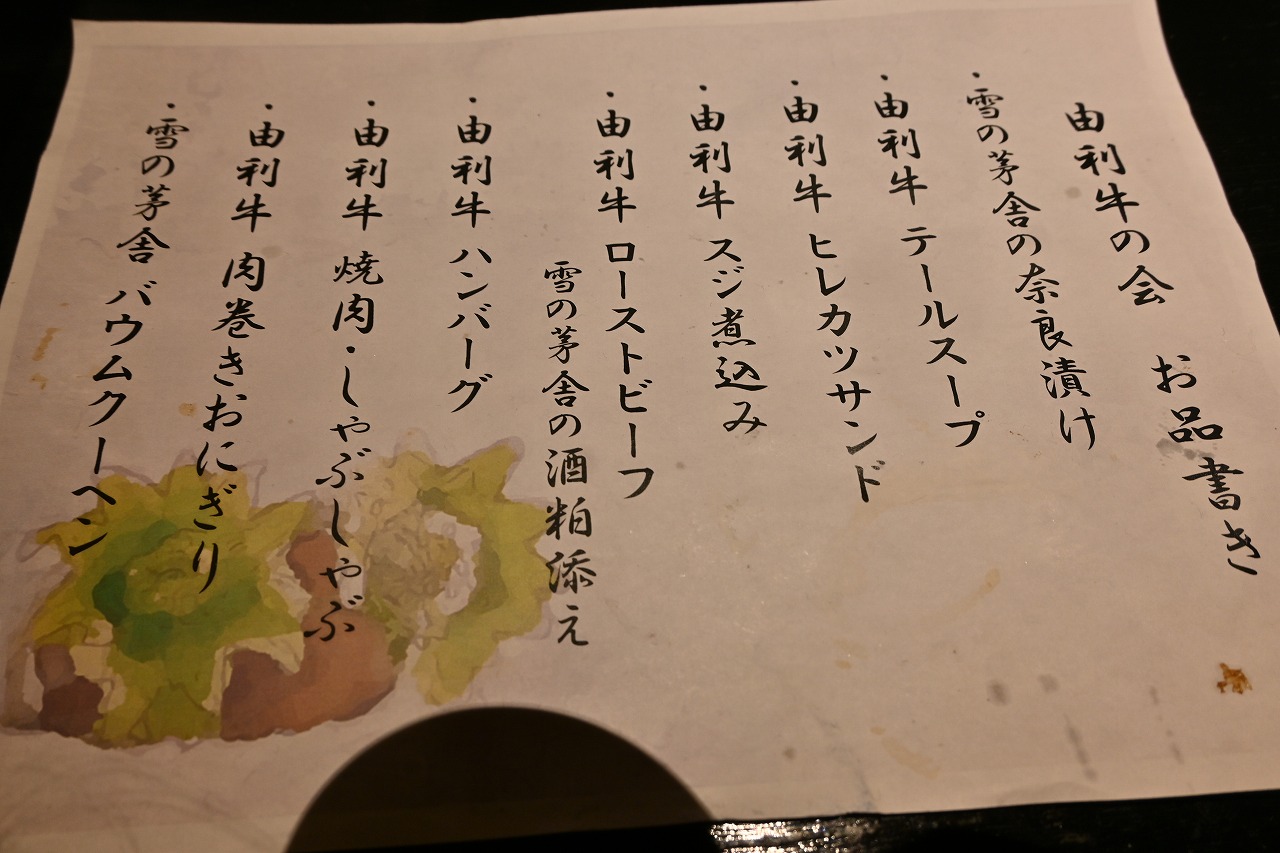 由利牛の会 お品書き
・雪の茅舎の奈良漬け
・由利牛 テールスープ
・由利牛 ヒレカツサンド
・由利牛 スジ煮込み
・由利牛 ローストビーフ
雪の茅舎の酒粕添え
・由利牛 ハンバーグ
・由利牛 焼肉・しゃぶしゃぶ
・由利牛 肉巻きおにぎり
・雪の茅舎 バウムクーヘン